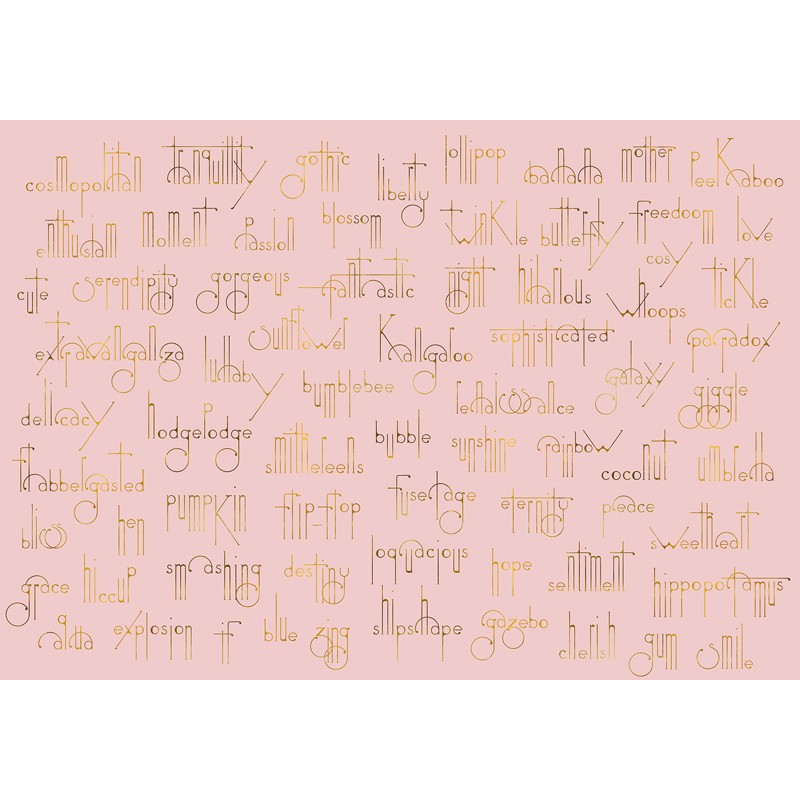 cosmopolitan tranquillity gothic liberty lollipop banana mother peekaboo
enthusiasm moment passion blossom twinkle butterfly freedom love
cute serendipity gorgeous fantastic night hilarious whoops cosy tickle
extravanganza sunflower kangaroo sophisticated paradox
lullaby bumblebee renaissance galaxy giggle
delicacy hodgepodge smithereens bubble sunshine rainbow coconut umbrella
flabbergasted pumpkin flip-flop fuselage eternity peace
bliss hen loquacious sweetheart
grace hiccup smashing destiny hope sentiment hippopotamus
aqua explosion if blue zing shipshape gazebo cherish gum smile